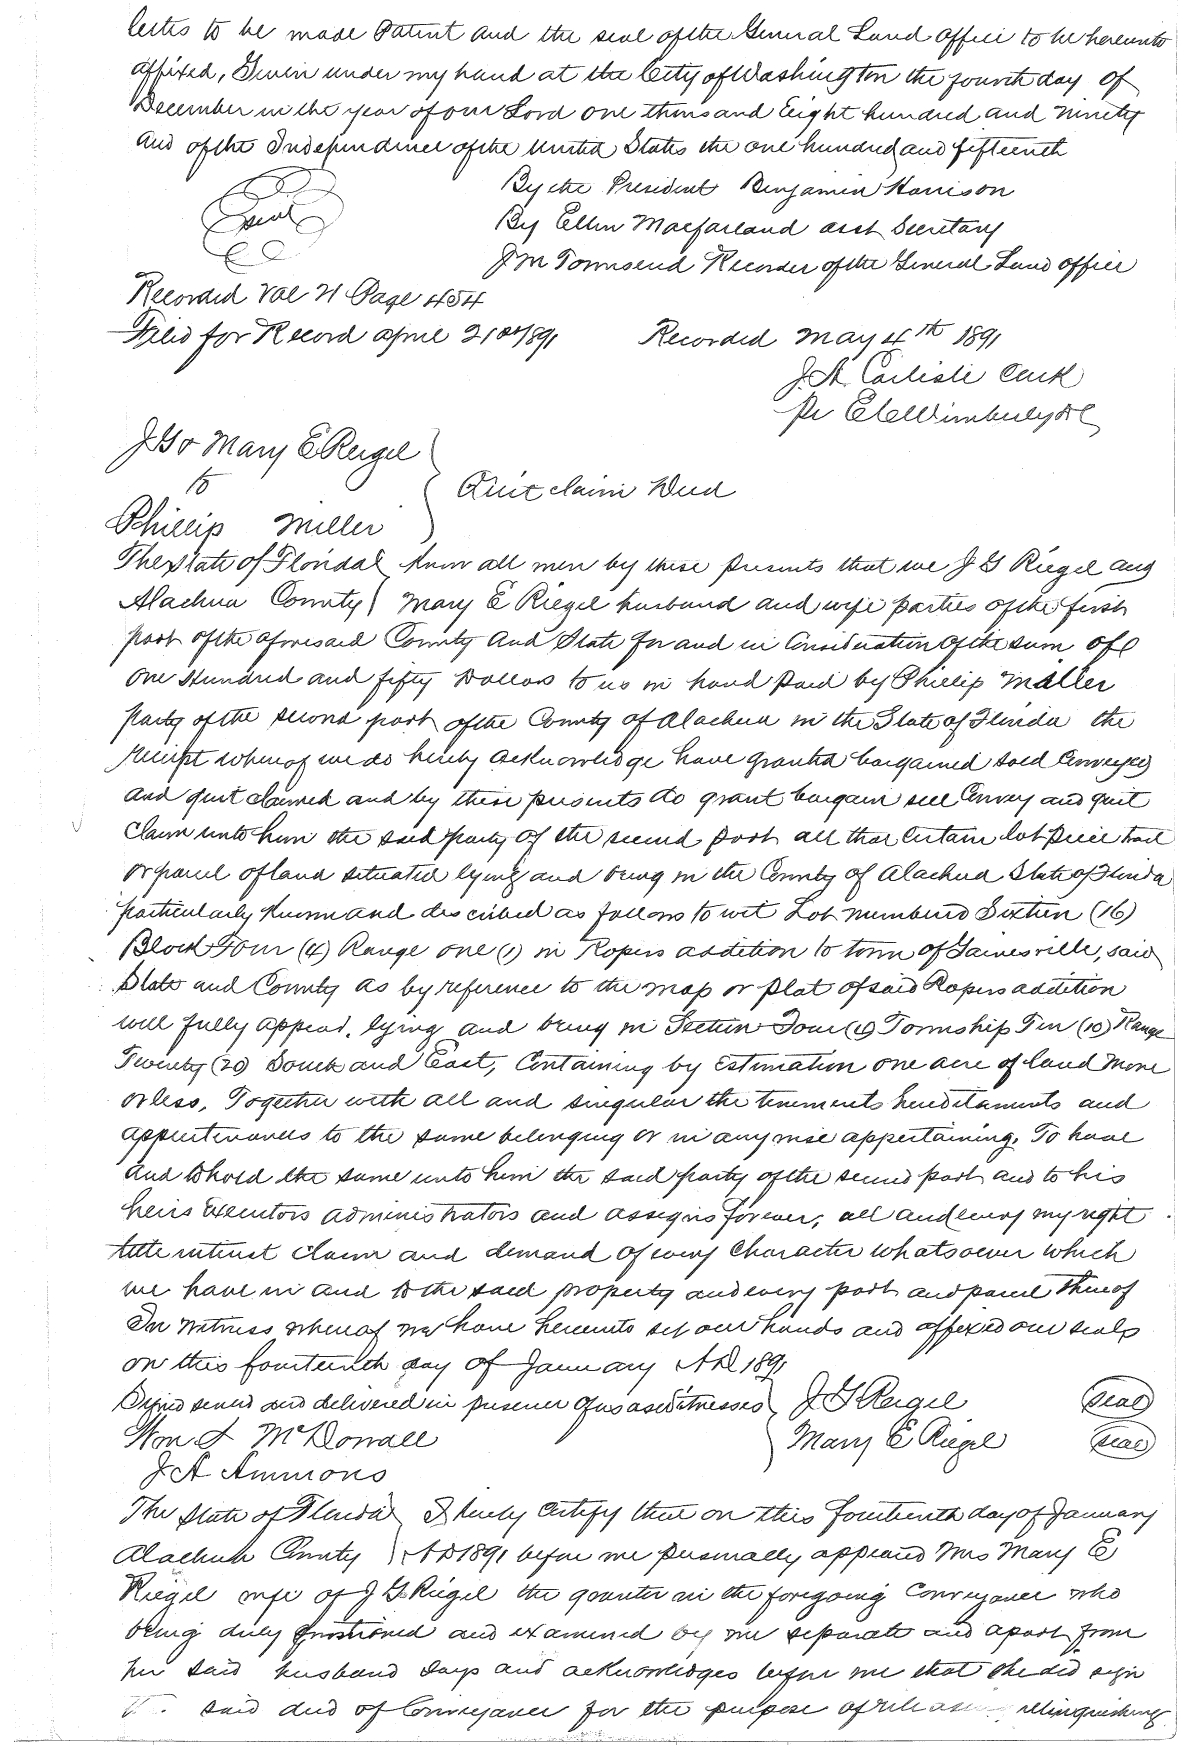 letters to be made Patent and the seal of the General Land Office to be hereunto
affixed, Given under my hand at the City of Washington the fourth day of
December in the year of our Lord one thousand Eight hundred and ninety
and of the Independence of the United States the one hundred and fifteenth
Seal
By the President Benjamin Harrison
By Ellen Macfarland asst Secretary
J M Townsend Recorder of the General Land office
Recorded Vol 21 Page 454
Filed for Record April 21st 1891 Recorded May 4th 1891
J. A. Carlisle Clerk
Pr E C Wimberly DC
J G & Mary E Riegel
to
Quit claim Deed
Phillip Miller
The State of Florida Know all men by these presents that we J G Riegel and
Alachua County Mary E Riegel husband and wife parties of the first
part of the aforesaid County and State for and in Consideration of the sum of
One Hundred and fifty Dollars to us in hand paid by Phillip Miller
party of the second part of the County of Alachua in the State of Florida the
receipt whereof we do hereby acknowledge have granted bargained sold Conveyed
and quit claimed and by these presents do grant bargain sell Convey and quit
claim unto him the said party of the second part all that certain lot piece tract
or parcel of land situated lying and being in the County of Alachua State of Florida
particularly known and described as follows to wit Lot numbered Sixteen (16)
Block Four (4) Range one (1) in Ropers addition to town of Gainesville, said
State and County as by reference to the map or plat of said Ropers addition
will fully appear, lying and being in Section Four (4) Township Ten (10) Range
Twenty (20) South and East, Containing by Estimation one acre of land more
or less, Together with all and singular the tenements hereditaments and
appurtenances to the same belonging or in any wise appertaining. To have
and to hold the same unto him the said party of the second part and to his
heirs Executors administrators and assigns forever, all and every my right
title interest claim and demand of every Character whatsoever which
we have in and to the said property and every part and parcel thereof
In witness whereof we have hereunto set our hands and affixed our seals
on this fourteenth day of January A D 1891
Signed sealed and delivered in presence of us as Witnesses J. G. Riegel Seal
Wm S McDowall Mary E Riegel Seal
J A Ammons
The State of Florida I hereby certify that on this fourteenth day of January
Alachua County A D 1891 before me personally appeared Mrs Mary E
Riegel wife of J G Riegel the grantor in the foregoing Conveyance who
being duly questioned and examined by me separate and apart from
her said husband says and acknowledges before me that she did sign
said deed of Conveyance for the purpose of relinquishing